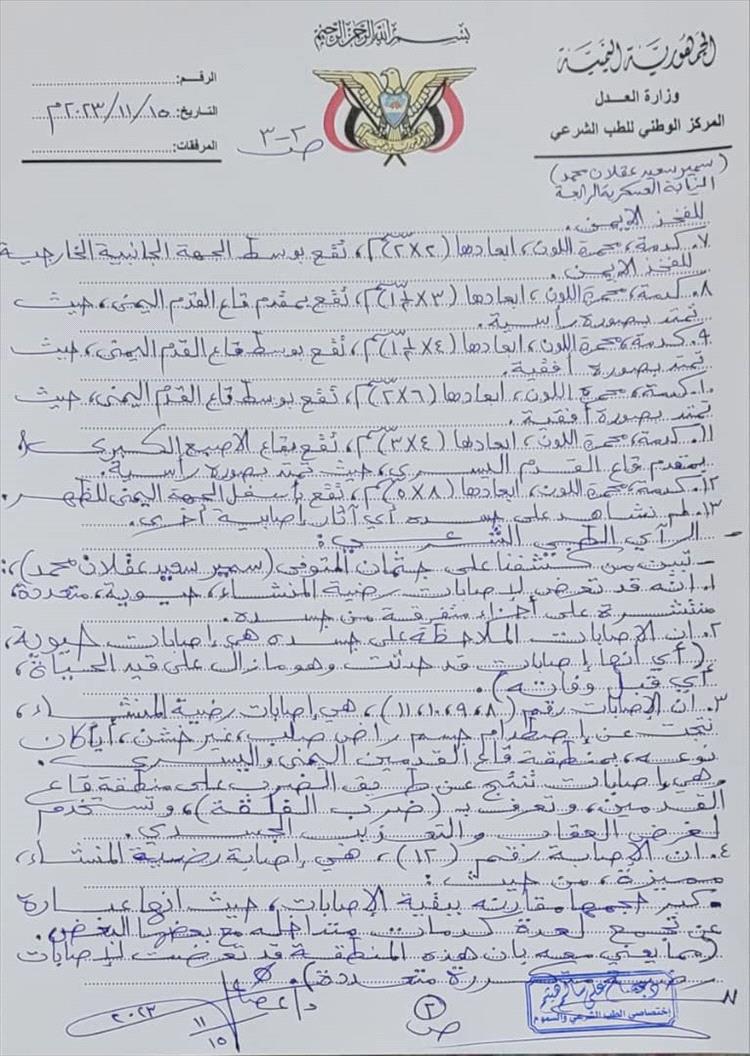 بسم الله الرحمن الرحيم
الجمهورية اليمنية
وزارة العدل
المركز الوطني للطب الشرعي
الرقم:
التاريخ: ٢٠٢٣/١١/١٥م
المرفقات:
ص ٢-٣
(سمير سعيد عقلان محمد)
النيابة العسكرية الرابعة
للفخذ الايمن.
٧. كدمة، محمرة اللون، ابعادها (٢×٢سم)، تقع بوسط الجهة الجانبية الخارجية
للفخذ الايمن.
٨. كدمة، محمرة اللون، ابعادها (٣×½١سم)، تقع بمقدم قاع القدم اليمنى، حيث
تمتد بصورة رأسية.
٩. كدمة، محمرة اللون، ابعادها (٤×½١سم)، تقع بوسط قاع القدم اليمنى، حيث
تمتد بصورة أفقية.
١٠. كدمة، محمرة اللون، ابعادها (٦×٢سم)، تقع بوسط قاع القدم اليمنى، حيث
تمتد بصورة أفقية.
١١. كدمة، محمرة اللون، ابعادها (٤×٣سم)، تقع بقاع الاصبع الكبرى
بمقدم قاع القدم اليسرى، حيث تمتد بصورة رأسية.
١٢. كدمة، محمرة اللون، ابعادها (٨×٥سم)، تقع بأسفل الجهة اليمنى للظهر.
١٣. لم نشاهد على جسده أي آثار إصابية أخرى.
- الرأي الطبي الشرعي:
- تبين من كشفنا على جثمان المتوفى (سمير سعيد عقلان محمد)،:
١. انه قد تعرض لإصابات رضية المنشاء، حيوية، متعددة،
منتشرة على أجزاء متفرقة من جسده.
٢. ان الإصابات الملاحظة على جسده هي إصابات حيوية،
(أي انها إصابات قد حدثت وهو مازال على قيد الحياة،
أي قبل وفاته).
٣. ان الإصابات رقم (٨، ٩، ١٠، ١١)، هي إصابات رضية المنشاء،
نتجت عن إصطدام جسم راض صلب، غير خشن، أياً كان
نوعه، بمنطقة قاع القدمين اليمنى واليسرى.
• هي إصابات تنتج عن طريق الضرب على منطقة قاع
القدمين، وتعرف بـ (ضرب الفلقة)، وتستخدم
لغرض العقاب والتعذيب الجسدي.
٤. ان الإصابة رقم (١٢)، هي إصابة رضية المنشاء،
مميزة، من حيث:
• كبر حجمها مقارنه ببقية الإصابات، حيث انها عبارة
عن تجمع لعدة كدمات متداخله مع بعضها البعض.
(مما يعني معه بان هذه المنطقة قد تعرضت لإصابات
متعددة).
٢٠٢٣/١١/١٥
ص ٢
إختصاصي الطب الشرعي والسموم